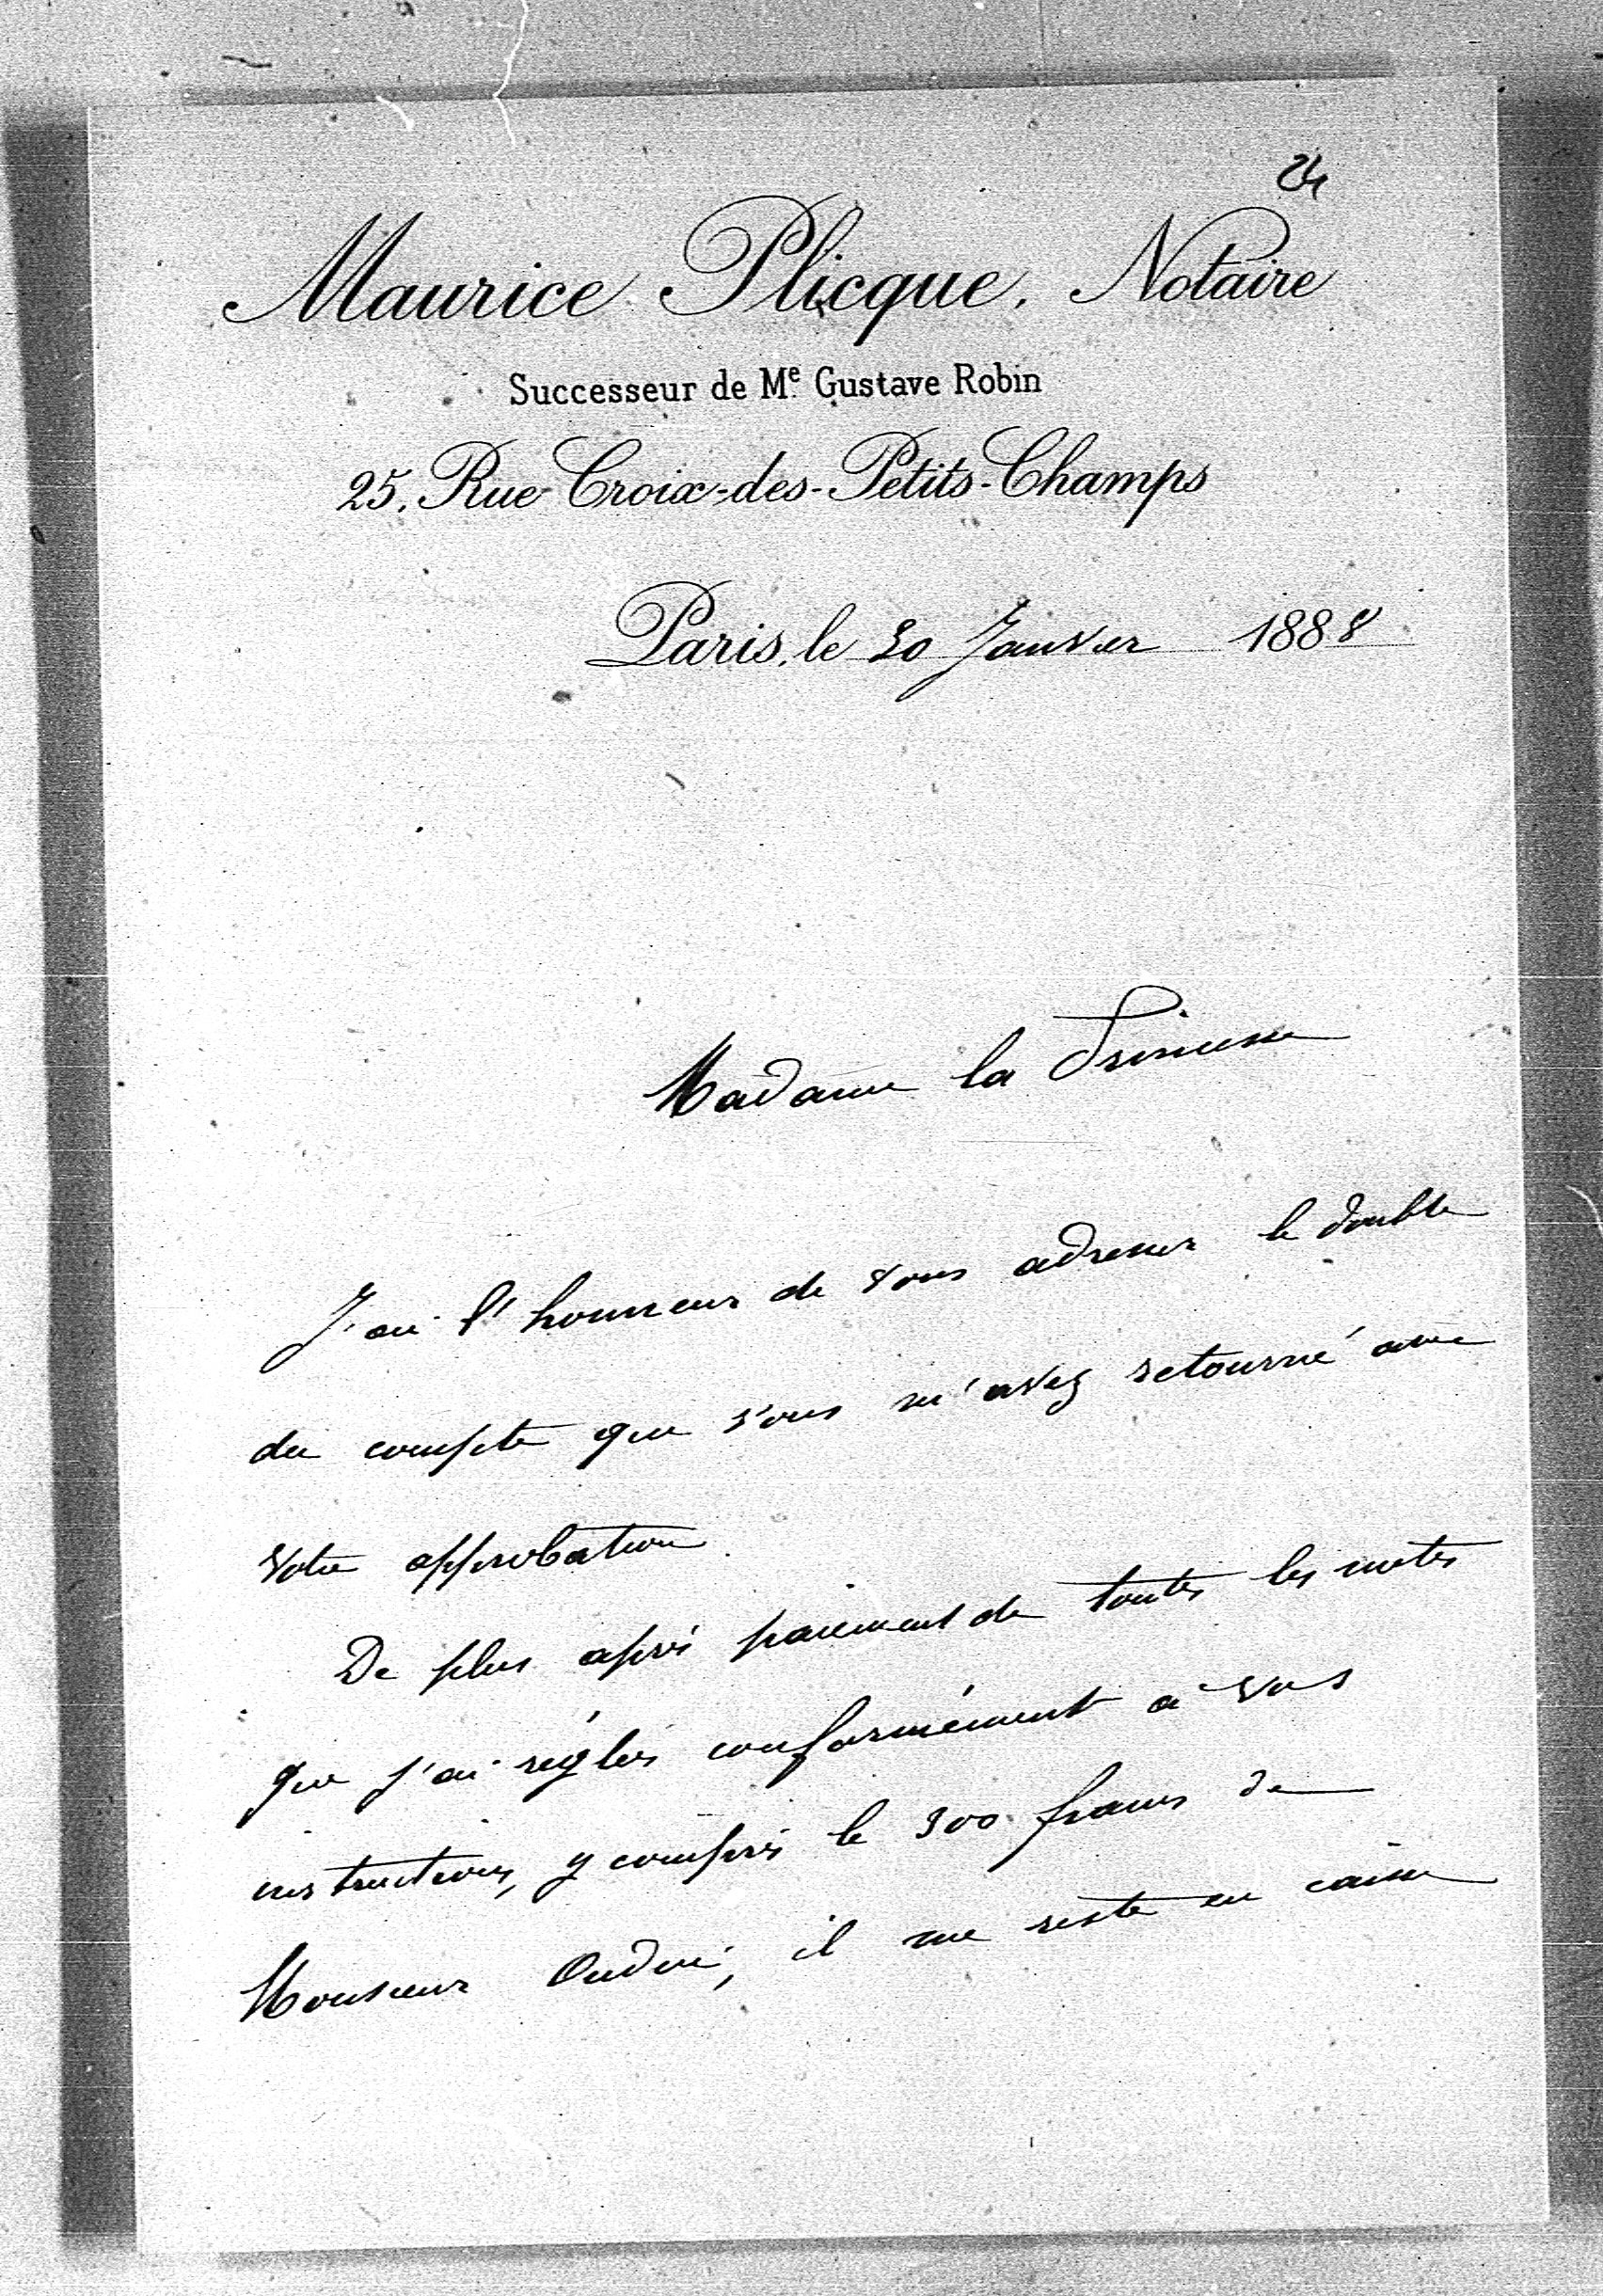 24
Maurice Plicque, Notaire
Successeur de Me Gustave Robin
25, Rue Croix-des-Petits-Champs
Paris, le 30 Janvier 1888
Madame la Princesse
J'ai l'honneur de vous adresser le double
du compte que vous m'avez retourné avec
votre approbation.
De plus après paiement de toutes les notes
que j'ai réglés conformément à vos
instructions, y compris le 300 francs de
Monsieur il me reste en caisse